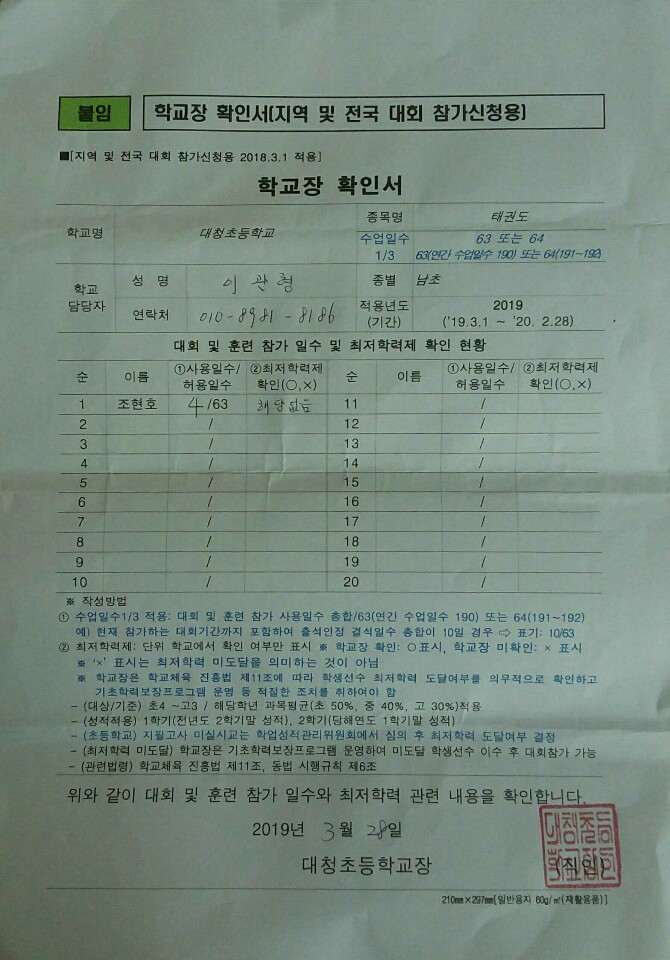 붙임
학교장 확인서(지역 및 전국 대회 참가신청용)
■[지역 및 전국 대회 참가신청용 2018.3.1 적용]
학교장 확인서
학교명 대청초등학교 종목명 태권도
수업일수 1/3 63 또는 64
63(연간 수업일수 190) 또는 64(191~192)
학교 담당자 성 명 이관형 종별 남초
연락처 010-8981-8186 적용년도 (기간) 2019
('19.3.1 ~ '20. 2.28)
대회 및 훈련 참가 일수 및 최저학력제 확인 현황
순 이름 ①사용일수/허용일수 ②최저학력제 확인(○,×) 순 이름 ①사용일수/허용일수 ②최저학력제 확인(○,×)
1 조현호 4/63 해당없음 11 /
2 / 12 /
3 / 13 /
4 / 14 /
5 / 15 /
6 / 16 /
7 / 17 /
8 / 18 /
9 / 19 /
10 / 20 /
※ 작성방법
① 수업일수1/3 적용: 대회 및 훈련 참가 사용일수 총합/63(연간 수업일수 190) 또는 64(191~192)
예) 현재 참가하는 대회기간까지 포함하여 출석인정 결석일수 총합이 10일 경우 ⇨ 표기: 10/63
② 최저학력제: 단위 학교에서 확인 여부만 표시 ※ 학교장 확인: ○표시, 학교장 미확인: × 표시
※ '×' 표시는 최저학력 미도달을 의미하는 것이 아님
※ 학교장은 학교체육 진흥법 제11조에 따라 학생선수 최저학력 도달여부를 의무적으로 확인하고
기초학력보장프로그램 운영 등 적절한 조치를 취하여야 함
- (대상/기준) 초4 ~고3 / 해당학년 과목평균(초 50%, 중 40%, 고 30%)적용
- (성적적용) 1학기(전년도 2학기말 성적), 2학기(당해연도 1학기말 성적)
- (초등학교) 지필고사 미실시교는 학업성적관리위원회에서 심의 후 최저학력 도달여부 결정
- (최저학력 미도달) 학교장은 기초학력보장프로그램 운영하여 미도달 학생선수 이수 후 대회참가 가능
- (관련법령) 학교체육 진흥법 제11조, 동법 시행규칙 제6조
위와 같이 대회 및 훈련 참가 일수와 최저학력 관련 내용을 확인합니다.
2019년 3월 28일
대청초등학교장 (직인)
대청초등학교장인
210㎜×297㎜[일반용지 60g/㎡(재활용품)]